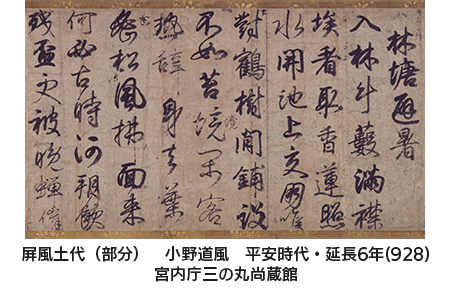 林塘避暑
入林斗藪滿襟
埃看取香蓮照
水開池上交朋唯
對鶴樹間鋪設
不如苔境閑客
熱辞身去葉
松風拂面来
何必古時河朔飲
残盃更被晩蝉催
屏風土代（部分）　小野道風　平安時代・延長6年(928)
宮内庁三の丸尚蔵館